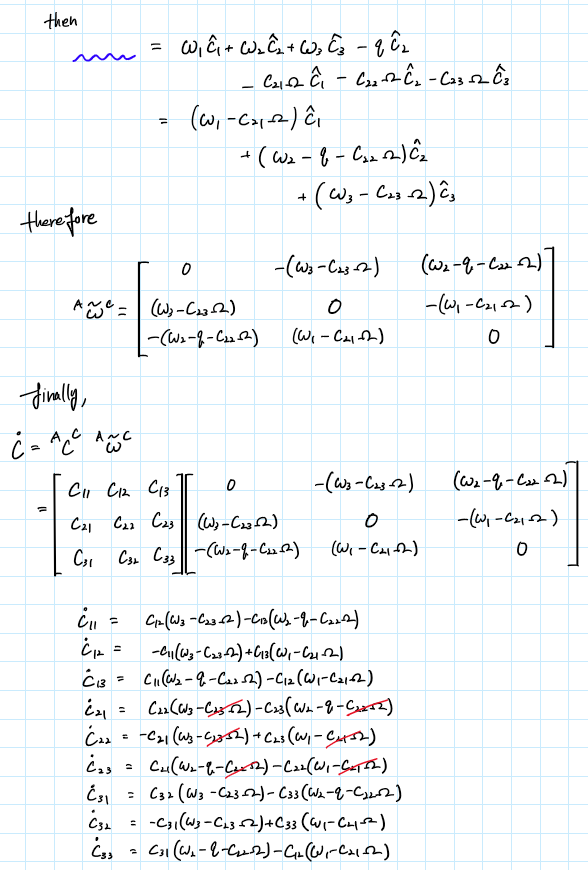 then
= ω₁ĉ₁ + ω₂ĉ₂ + ω₃ĉ₃ − qĉ₂
− C₂₁Ωĉ₁ − C₂₂Ωĉ₂ − C₂₃Ωĉ₃
= (ω₁ − C₂₁Ω)ĉ₁
+ (ω₂ − q − C₂₂Ω)ĉ₂
+ (ω₃ − C₂₃Ω)ĉ₃
therefore
0 −(ω₃−C₂₃Ω) (ω₂−q−C₂₂Ω)
ᴬω̃ᶜ = (ω₃−C₂₃Ω) 0 −(ω₁−C₂₁Ω)
−(ω₂−q−C₂₂Ω) (ω₁−C₂₁Ω) 0
finally,
Ċ = ᴬCᶜ ᴬω̃ᶜ
C₁₁ C₁₂ C₁₃ 0 −(ω₃−C₂₃Ω) (ω₂−q−C₂₂Ω)
= C₂₁ C₂₂ C₂₃ (ω₃−C₂₃Ω) 0 −(ω₁−C₂₁Ω)
C₃₁ C₃₂ C₃₃ −(ω₂−q−C₂₂Ω) (ω₁−C₂₁Ω) 0
Ċ₁₁ = C₁₂(ω₃−C₂₃Ω)−C₁₃(ω₂−q−C₂₂Ω)
Ċ₁₂ = −C₁₁(ω₃−C₂₃Ω)+C₁₃(ω₁−C₂₁Ω)
Ċ₁₃ = C₁₁(ω₂−q−C₂₂Ω)−C₁₂(ω₁−C₂₁Ω)
Ċ₂₁ = C₂₂(ω₃−C₂₃Ω)−C₂₃(ω₂−q−C₂₂Ω)
Ċ₂₂ = −C₂₁(ω₃−C₂₃Ω)+C₂₃(ω₁−C₂₁Ω)
Ċ₂₃ = C₂₁(ω₂−q−C₂₂Ω)−C₂₂(ω₁−C₂₁Ω)
Ċ₃₁ = C₃₂(ω₃−C₂₃Ω)−C₃₃(ω₂−q−C₂₂Ω)
Ċ₃₂ = −C₃₁(ω₃−C₂₃Ω)+C₃₃(ω₁−C₂₁Ω)
Ċ₃₃ = C₃₁(ω₂−q−C₂₂Ω)−C₁₂(ω₁−C₂₁Ω)